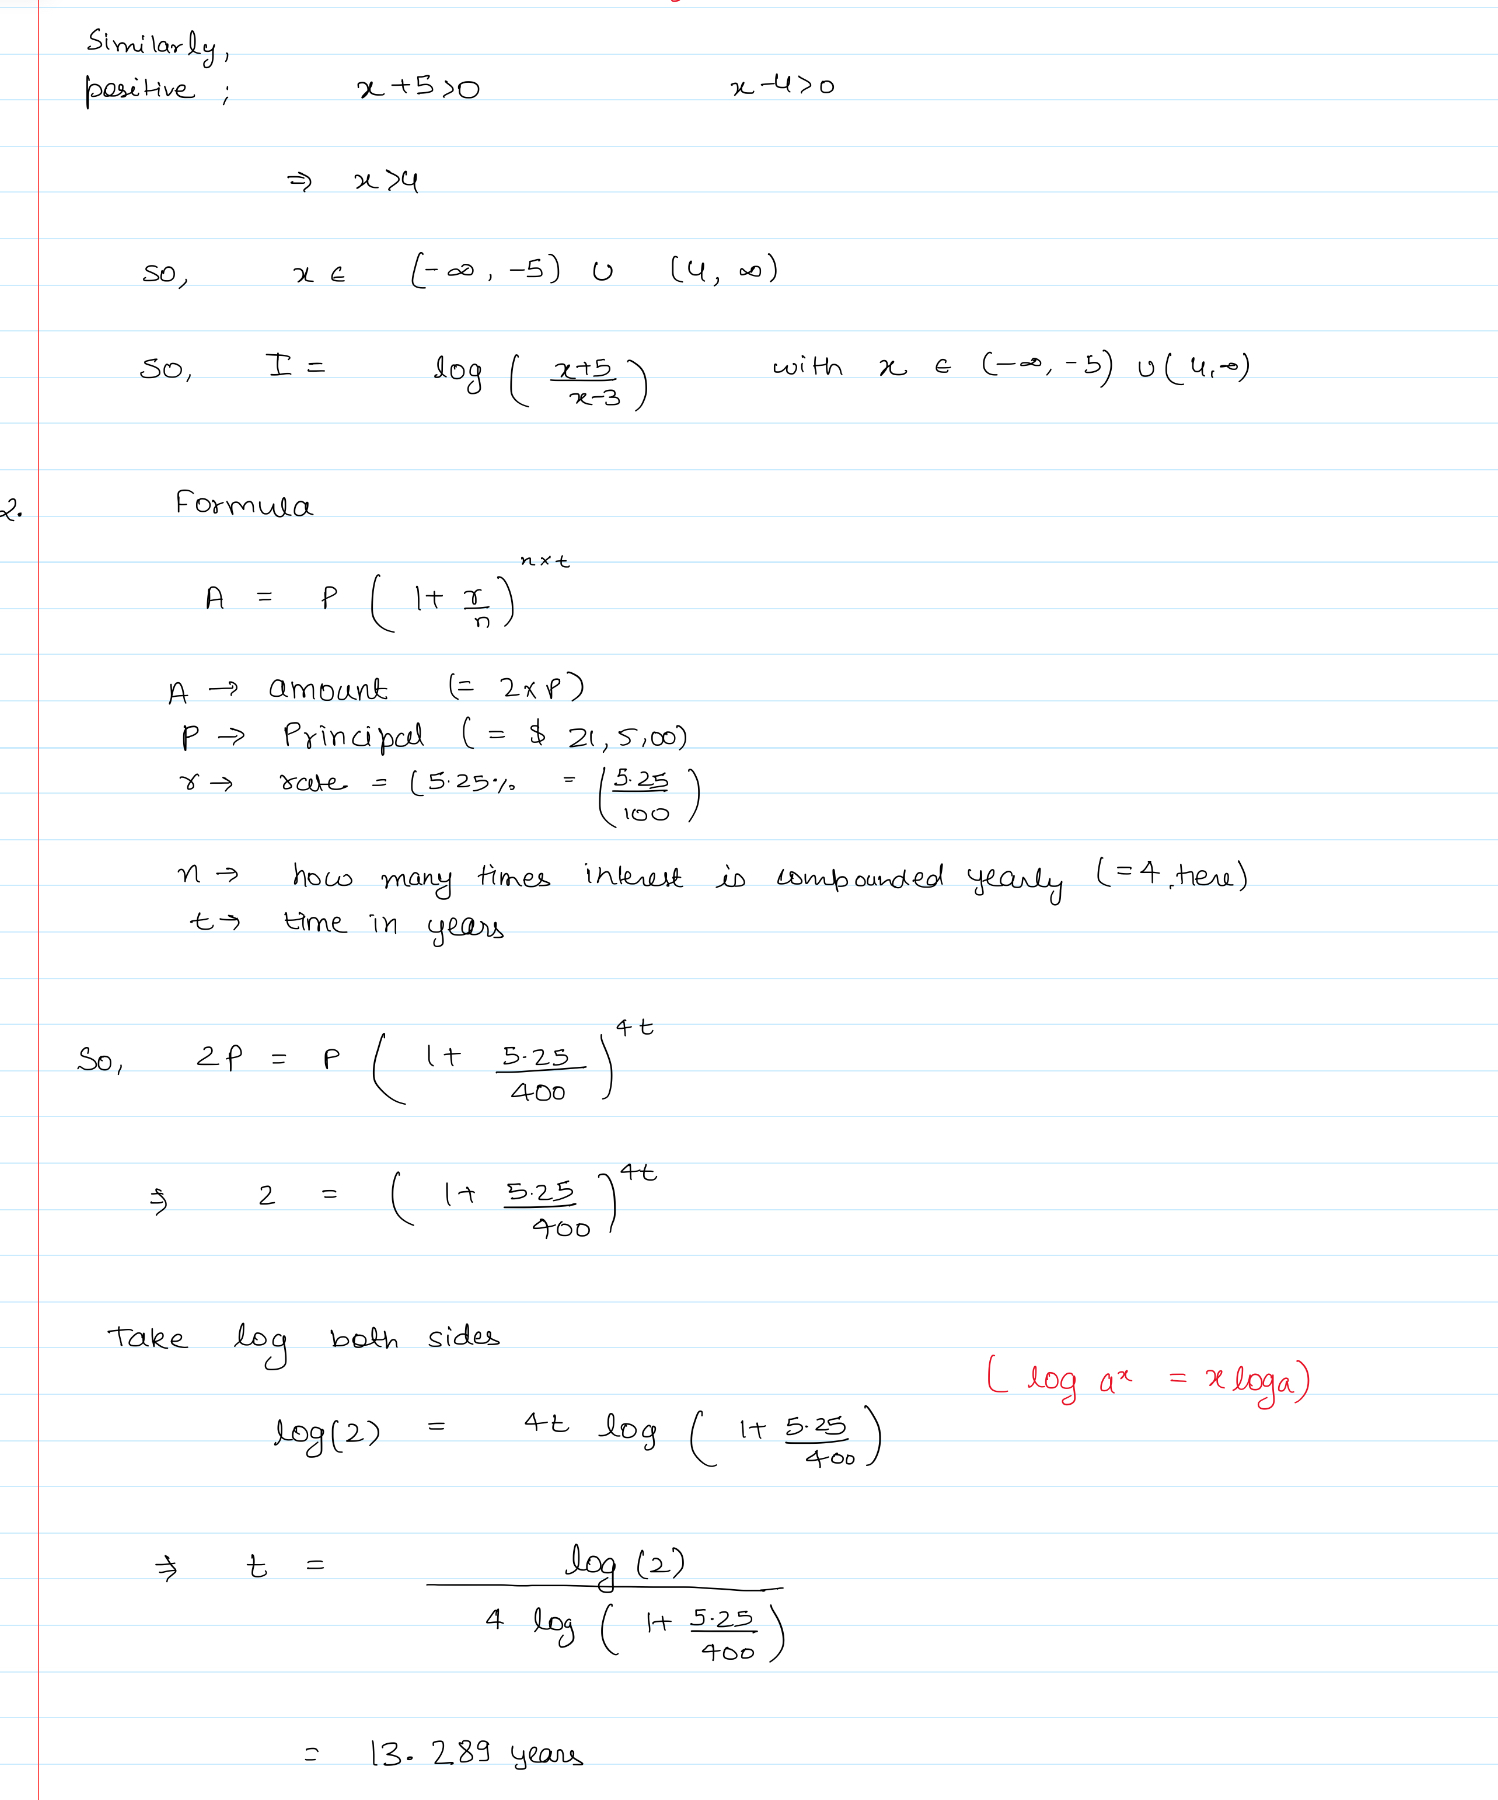 Similarly,
positive ; x+5>0 x-4>0
⇒ x>4
so, x ∈ (-∞, -5) ∪ (4, ∞)
so, I = log ( (x+5)/(x-3) ) with x ∈ (-∞, -5) ∪ (4, ∞)
2. Formula
A = P ( 1+ r/n )^(n×t)
A → amount (= 2×P)
P → Principal ( = $ 21,5,00)
r → rate = (5.25% = (5.25/100)
n → how many times interest is compounded yearly (=4, here)
t → time in years
So, 2P = P ( 1+ 5.25/400 )^(4t)
⇒ 2 = ( 1+ 5.25/400 )^(4t)
Take log both sides
( log a^x = x log a)
log(2) = 4t log ( 1+ 5.25/400 )
⇒ t = log (2) / ( 4 log ( 1+ 5.25/400 ) )
= 13.289 years